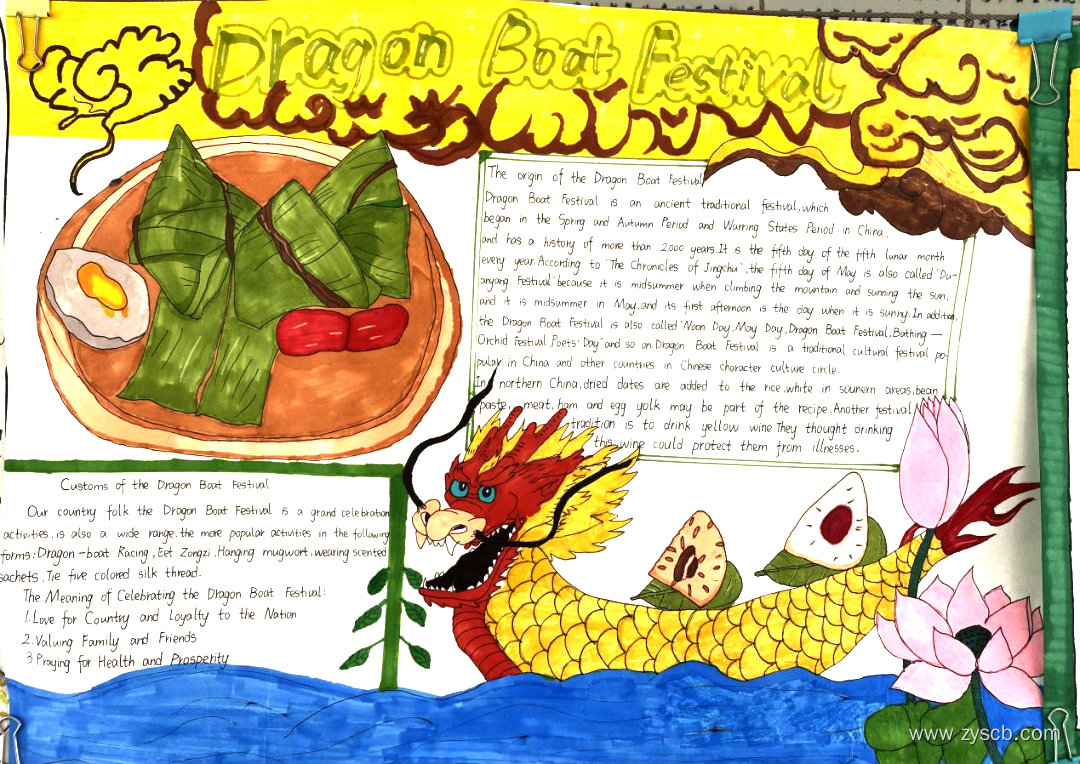 Dragon Boat Festival
The origin of the Dragon Boat Festival
Dragon Boat Festival is an ancient traditional festival, which
began in the Spring and Autumn Period and Warring States Period in China.
and has a history of more than 2,000 years. It is the fifth day of the fifth lunar month
every year. According to "The Chronicles of Jingchu", the fifth day of May is also called "Du-
anyang Festival" because it is midsummer when climbing the mountain and sunning the sun,
and it is midsummer in May, and its first afternoon is the day when it is sunny. In addition,
the Dragon Boat Festival is also called "Noon Day, May Day, Dragon Boat Festival, Bathing —
Orchid Festival Poets' Day" and so on. Dragon Boat Festival is a traditional cultural festival po-
pular in China and other countries in Chinese character culture circle.
In northern China, dried dates are added to the rice, white in sounern areas, bean
paste, meat, ham and egg yolk may be part of the recipe. Another festival
tradition is to drink yellow wine. They thought drinking
this wine could protect them from illnesses.
Customs of the Dragon Boat Festival
Our country folk the Dragon Boat Festival is a grand celebration
activities, is also a wide range, the more popular activities in the following
forms: Dragon-boat Racing, Eet Zongzi, Hanging mugwort, wearing scented
sachets, Tie five colored silk thread.
The Meaning of Celebrating the Dragon Boat Festival:
1. Love for Country and Loyalty to the Nation
2. Valuing Family and Friends
3 Praying for Health and Prosperity
www.zyscb.com